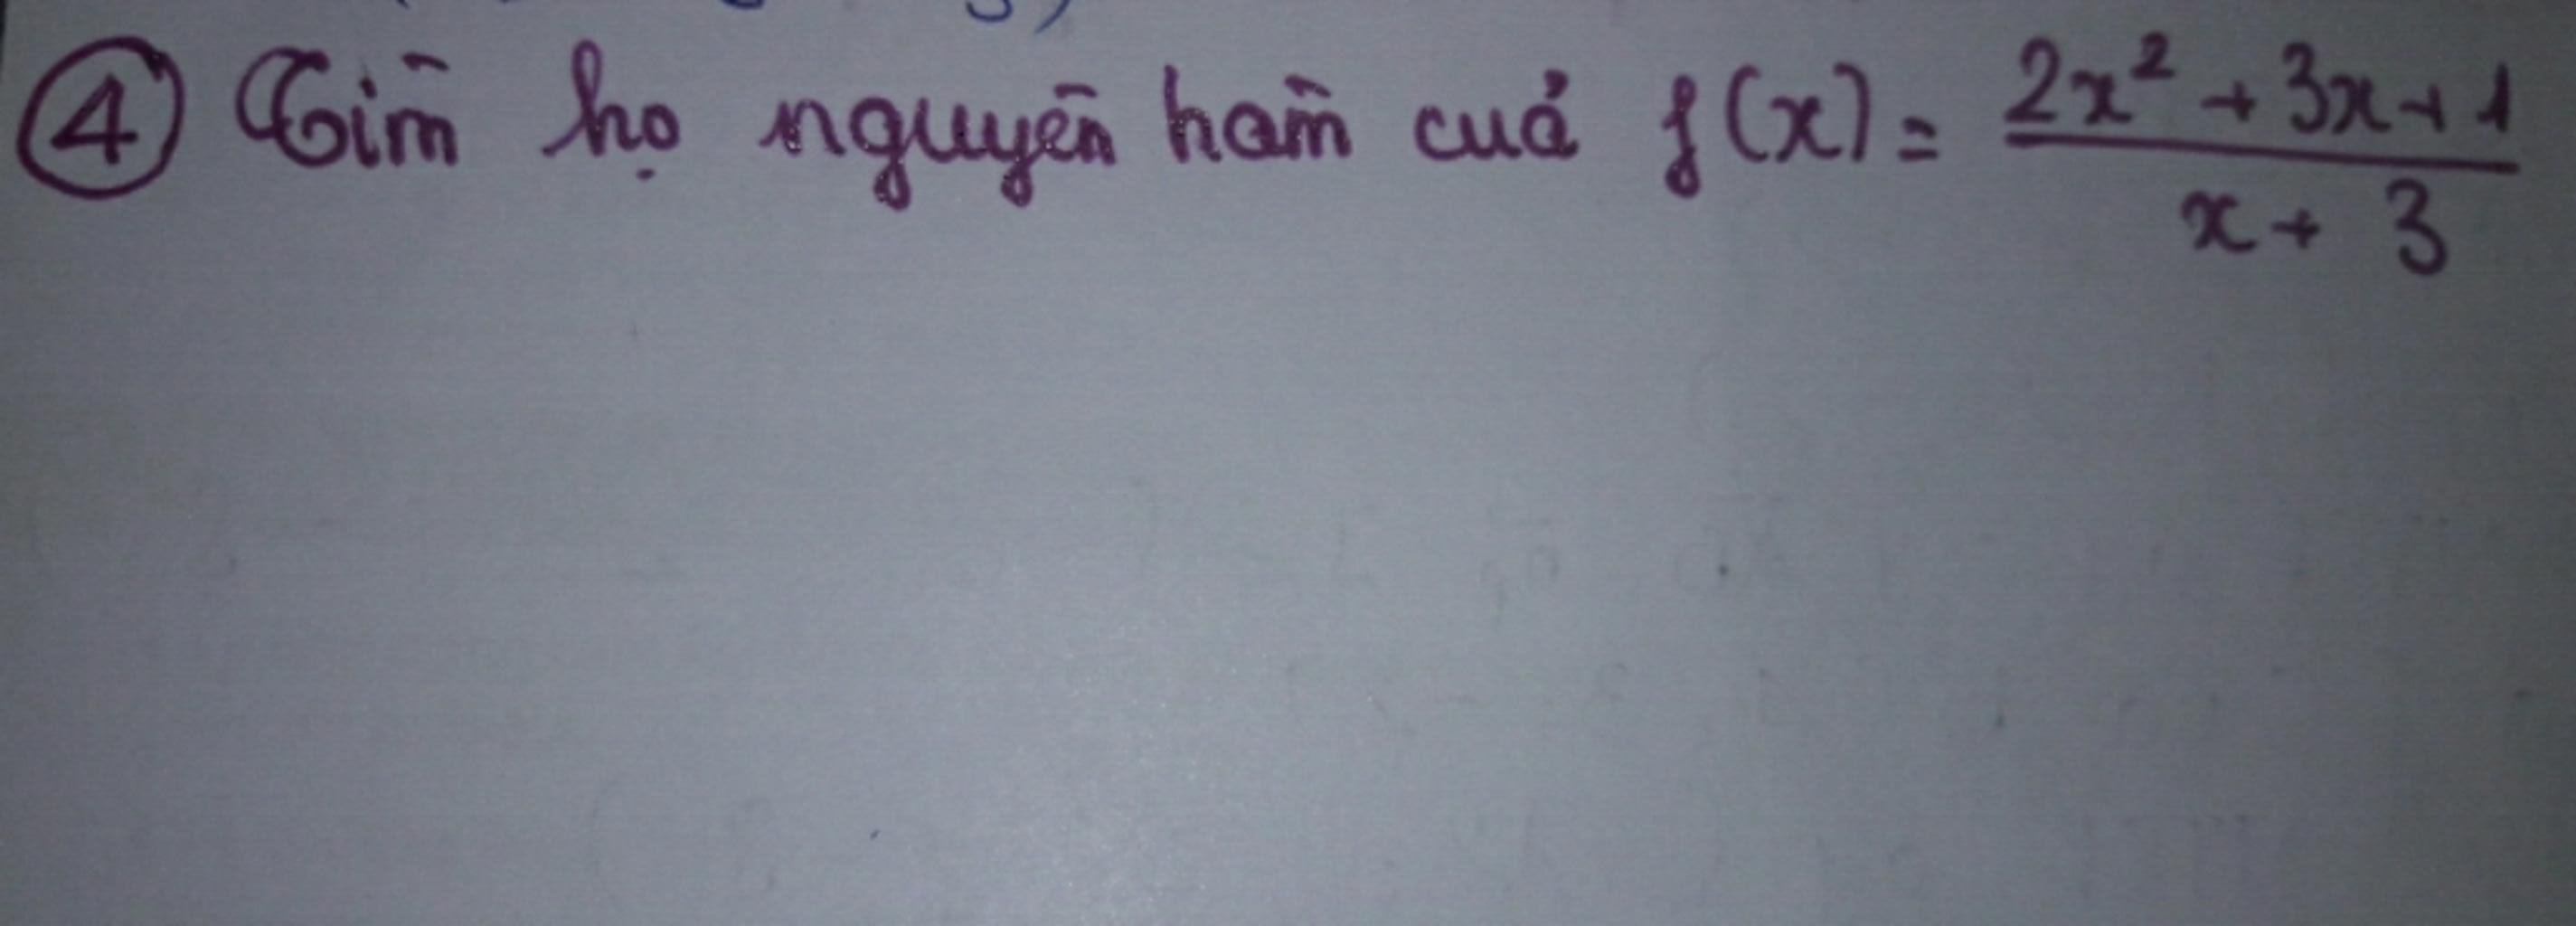 ④ Tìm họ nguyên hàm của f(x) = \frac{2x² + 3x + 1}{x + 3}